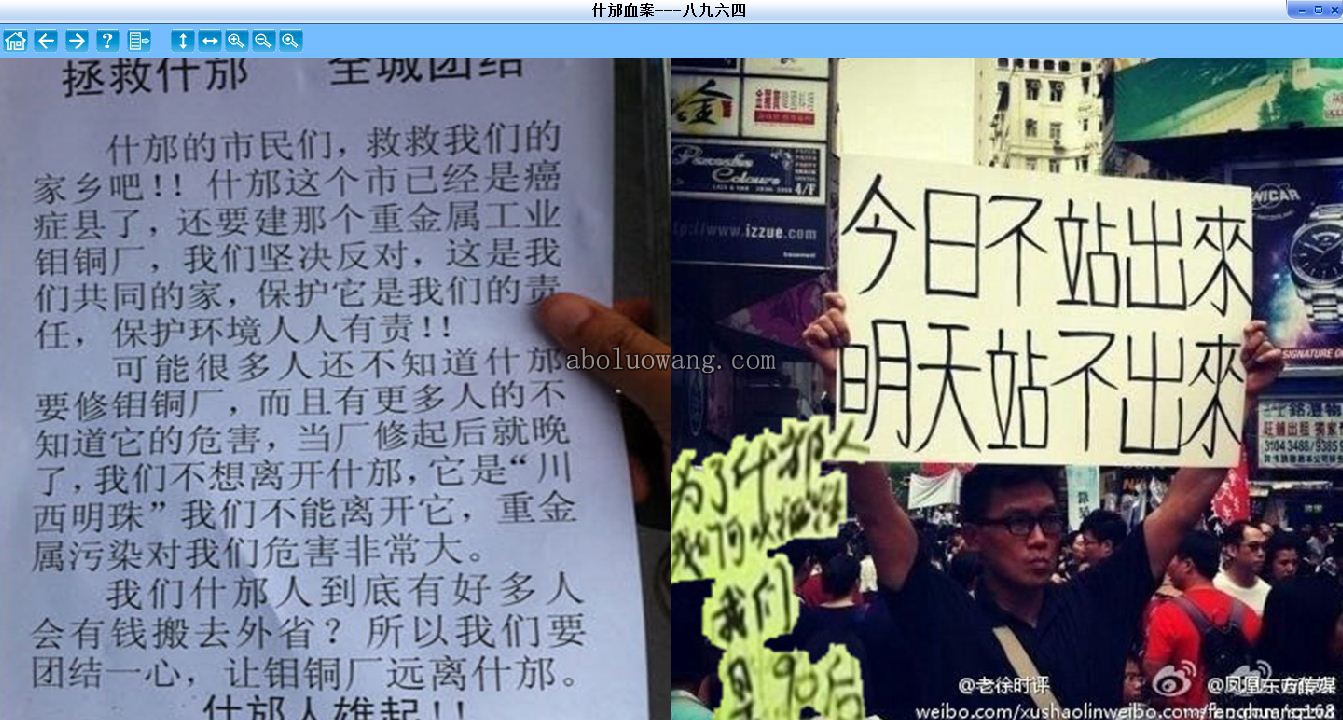 什邡血案---八九六四
拯救什邡 全城团结
什邡的市民们，救救我们的
家乡吧！！什邡这个市已经是癌
症县了，还要建那个重金属工业
钼铜厂，我们坚决反对，这是我
们共同的家，保护它是我们的责
任，保护环境人人有责！！
可能很多人还不知道什邡
要修钼铜厂，而且有更多人的不
知道它的危害，当厂修起后就晚
了，我们不想离开什邡，它是“川
西明珠”我们不能离开它，重金
属污染对我们危害非常大。
我们什邡人到底有好多人
会有钱搬去外省？所以我们要
团结一心，让钼铜厂远离什邡。
什邡人雄起！！
aboluowang.com
http://www.izzue.com
basement
4/F
今日不站出來
明天站不出來
SIGNATURE
旺鋪出租
3104 3488
为了什邡人
我们可以牺牲
我们
是90后
@老徐时评
@凤凰东方传媒
weibo.com/xushaolin